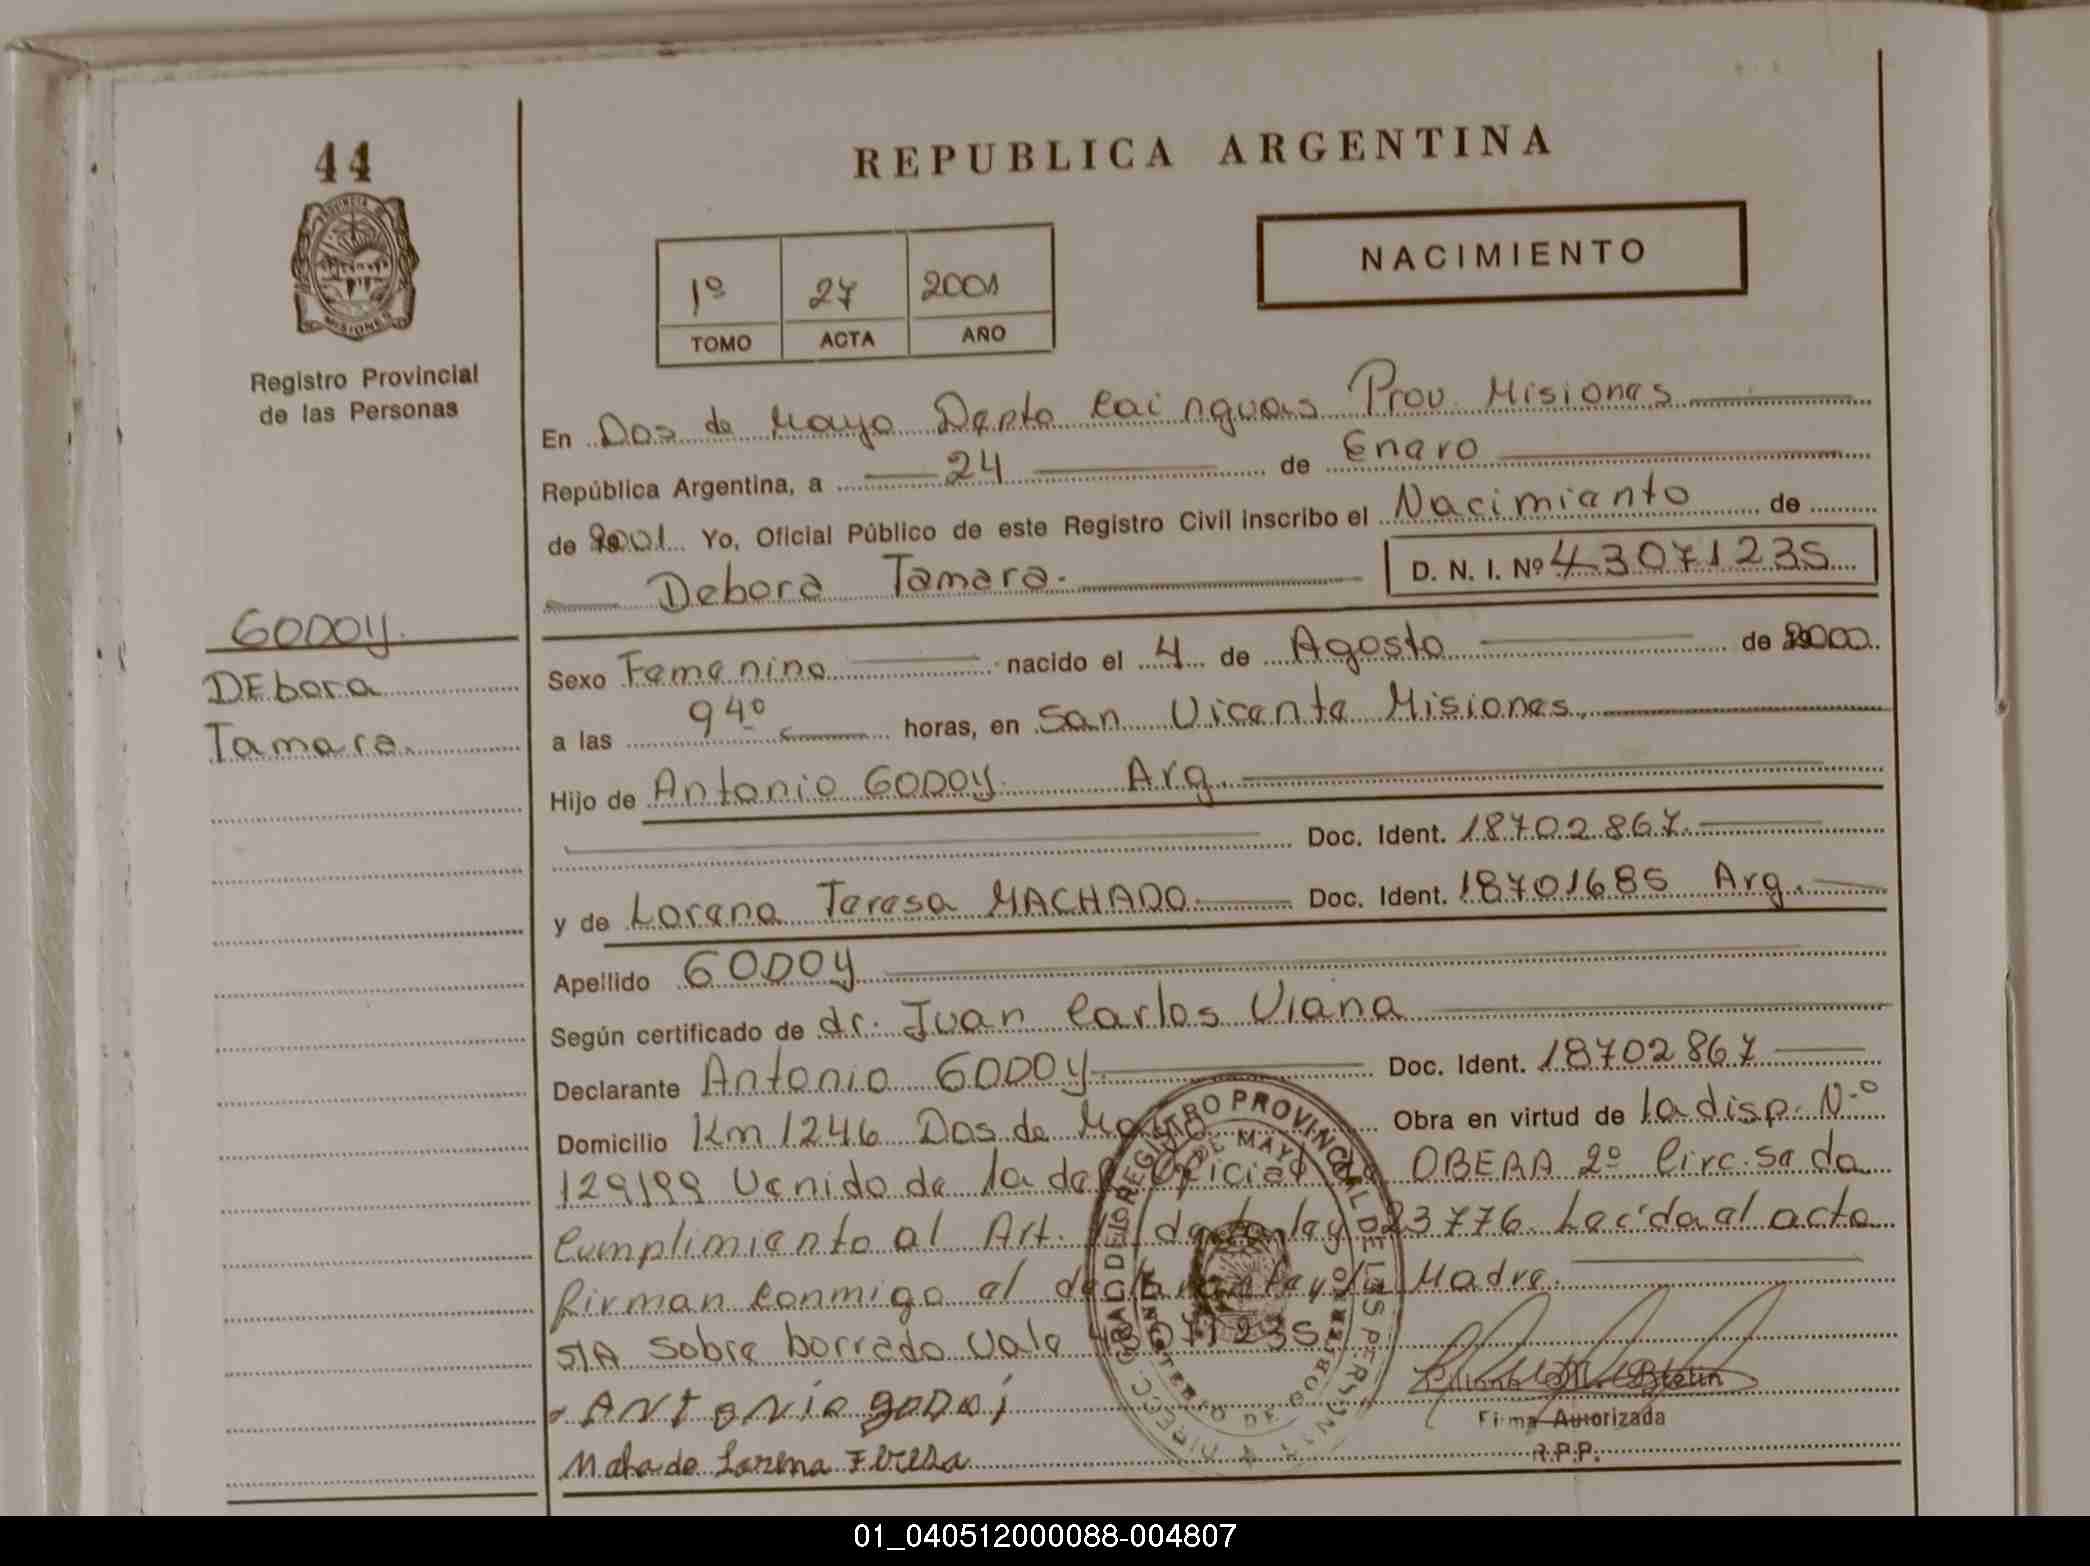 44
Registro Provincial
de las Personas
GODOY.
DEbora
Tamara.
REPUBLICA ARGENTINA
NACIMIENTO
1º 27 2001
TOMO ACTA AÑO
En Dos de Mayo Depto Cainguas Prov. Misiones
República Argentina, a 24 de Enero
de 2001 Yo, Oficial Público de este Registro Civil inscribo el Nacimiento de
Debora Tamara. D. N. I. Nº 43071235
Sexo Femenino nacido el 4 de Agosto de 2000
a las 9 40 horas, en San Vicente Misiones.
Hijo de Antonio GODOY. Arg.
Doc. Ident. 18702867.
y de Lorena Teresa MACHADO Doc. Ident. 18701685 Arg.
Apellido GODOY
Según certificado de dr. Juan Carlos Viana
Declarante Antonio GODOY Doc. Ident. 18702867
Domicilio Km 1246 Dos de Mayo Obra en virtud de la disp. N.º
129/99 Venido de la del Oficial de OBERA 2º Circ. Se da
Cumplimiento al Art. de la ley 23776. Leída el acta
firman conmigo el declarante y la Madre.
S/A sobre borrado Vale 43071235
Antonio godoi
Machado Lorena Teresa
Firma Autorizada
R.P.P.
REGISTRO PROVINCIAL DE LAS PERSONAS
DE MAYO
MINISTERIO DE GOBIERNO
01_040512000088-004807